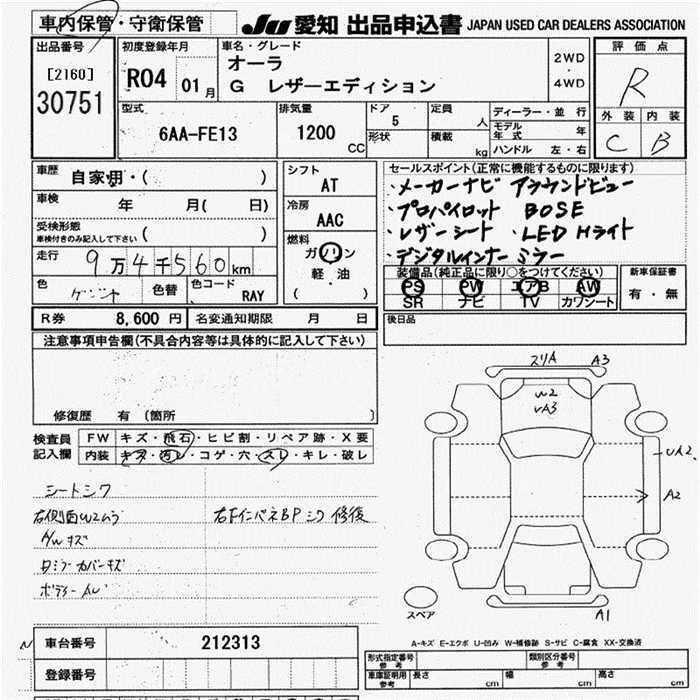 車内保管・守衛保管
JU 愛知 出品申込書 JAPAN USED CAR DEALERS ASSOCIATION
出品番号
[2160]
30751
初度登録年月
R04 01 月
車名・グレード
オーラ
G レザーエディション
2WD
・
4WD
評価点
R
外装 内装
C B
型式
6AA-FE13
排気量
1200
CC
ドア
5
形状
定員
人
積載
kg
ディーラー・並行
モデル年式 年
ハンドル 左・右
車歴
自家用・( )
車検 年 月( 日)
受検形態
車検付きのみ記入して下さい ( )
走行 9万4千560km
色
色替
色コード
RAY
シフト
AT
冷房
AAC
燃料
ガソリン
軽・油
( )
セールスポイント(正常に機能するものに限ります)
・メーカーナビ アラウンドビュー
・プロパイロット BOSE
・レザーシート ・LED Hライト
・デジタルインナーミラー
装備品(純正品に限り○をつけてください)
PS PW エアB AW
SR ナビ TV カワシート
新車保証書
有・無
R券 8,600 円
名変通知期限 月 日
後日品
注意事項申告欄(不具合内容等は具体的に記入して下さい)
修復歴 有 (箇所 )
検査員
記入欄
FW キズ・飛石・ヒビ割・リペア跡・X要
内装 キズ・汚レ・コゲ・穴・スレ・キレ・破レ
シートシワ
右側面W2ムラ
右下インパネBPシワ 修復
AWキズ
Dミラーカバーキズ
ボディーAU
スリA A3
W2
UA3
UA2
A2
A1
スペア
A-キズ E-エクボ U-凹み W-補修跡 S-サビ C-腐食 XX-交換済
車台番号
212313
登録番号
形式指定番号
参考
類別区分番号
参考
車庫証明用
参考
長さ cm
幅 cm
高さ cm